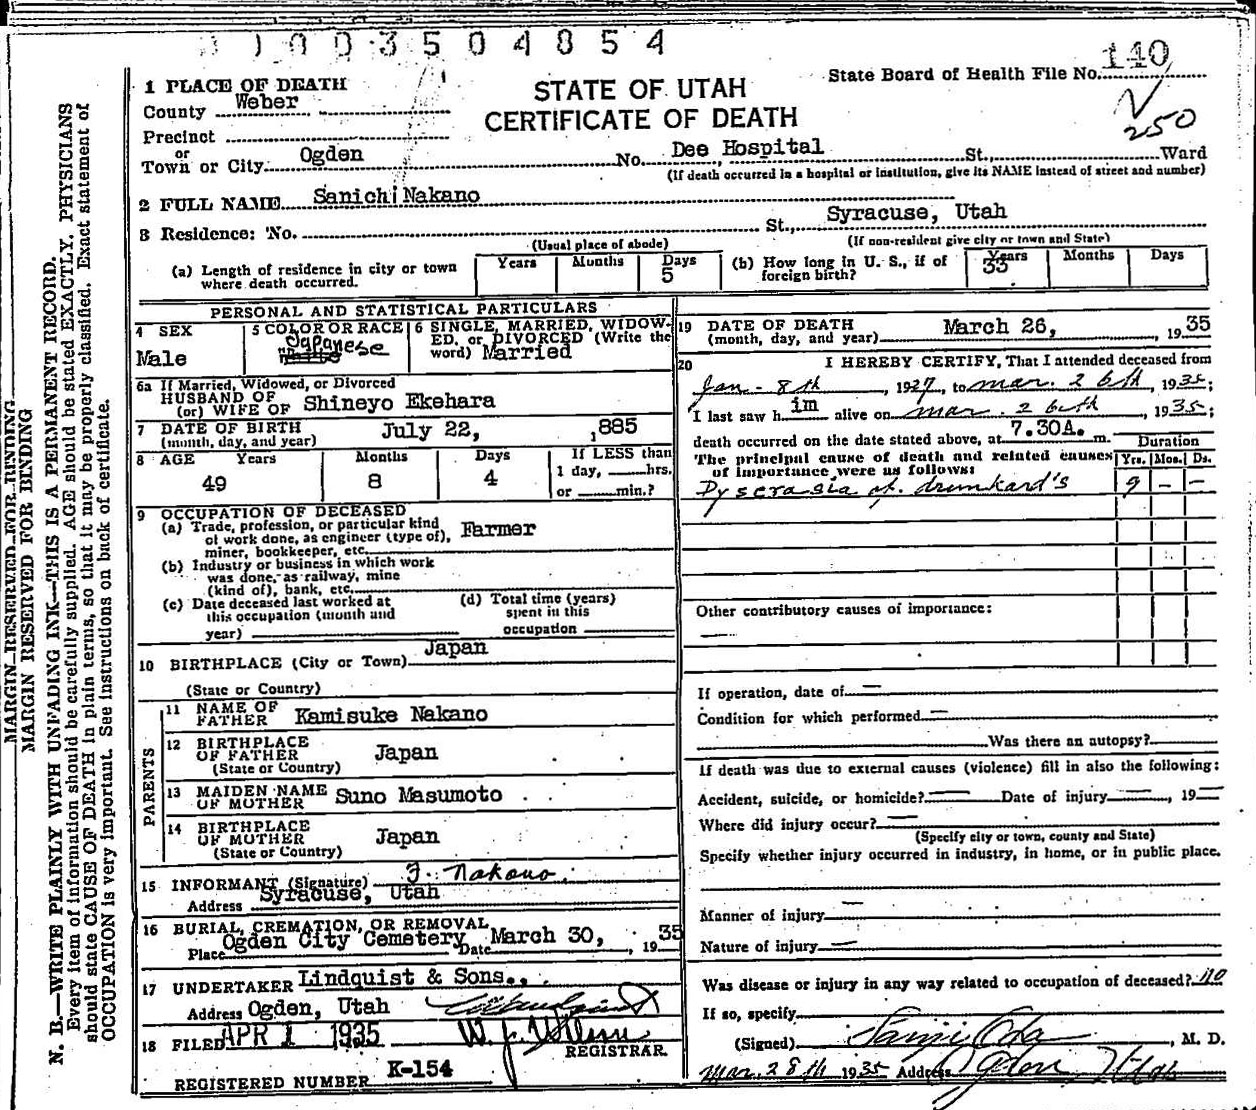 1003504854
140
State Board of Health File No.
250
STATE OF UTAH
CERTIFICATE OF DEATH
1 PLACE OF DEATH
County Weber
Precinct
or
Town or City Ogden No. Dee Hospital St., Ward
(If death occurred in a hospital or institution, give its NAME instead of street and number)
2 FULL NAME Sanichi Nakano
3 Residence: No. St., Syracuse, Utah
(Usual place of abode) (If non-resident give city or town and State)
(a) Length of residence in city or town where death occurred. Years Months Days 5
(b) How long in U. S., if of foreign birth? Years 33 Months Days
PERSONAL AND STATISTICAL PARTICULARS
4 SEX Male
5 COLOR OR RACE Japanese
6 SINGLE, MARRIED, WIDOWED, or DIVORCED (Write the word) Married
6a If Married, Widowed, or Divorced
HUSBAND OF
(or) WIFE OF Shineyo Ekehara
7 DATE OF BIRTH
(month, day, and year) July 22, 1885
8 AGE Years 49 Months 8 Days 4 If LESS than
1 day, hrs.
or min.?
9 OCCUPATION OF DECEASED
(a) Trade, profession, or particular kind
of work done, as engineer (type of), Farmer
miner, bookkeeper, etc.
(b) Industry or business in which work
was done, as railway, mine
(kind of), bank, etc.
(c) Date deceased last worked at
this occupation (month and
year)
(d) Total time (years)
spent in this
occupation
10 BIRTHPLACE (City or Town) Japan
(State or Country)
PARENTS
11 NAME OF
FATHER Kamisuke Nakano
12 BIRTHPLACE
OF FATHER Japan
(State or Country)
13 MAIDEN NAME
OF MOTHER Suno Masumoto
14 BIRTHPLACE
OF MOTHER Japan
(State or Country)
15 INFORMANT (Signature) F. Nakano.
Address Syracuse, Utah
16 BURIAL, CREMATION, OR REMOVAL
Place Ogden City Cemetery Date March 30, 1935
17 UNDERTAKER Lindquist & Sons.
Address Ogden, Utah
18 FILED APR 1 1935
REGISTRAR.
REGISTERED NUMBER K-154
19 DATE OF DEATH
(month, day, and year) March 26, 1935
20 I HEREBY CERTIFY, That I attended deceased from
Jan - 8th, 1927, to mar. 26th, 1935;
I last saw him alive on mar. 26th, 1935;
death occurred on the date stated above, at 7.30A. m.
The principal cause of death and related causes
of importance were as follows:
Duration
Yrs. Mos. Ds.
Dyscrasia of. drunkard's 9 - -
Other contributory causes of importance:
—
If operation, date of —
Condition for which performed —
Was there an autopsy?
If death was due to external causes (violence) fill in also the following:
Accident, suicide, or homicide? — Date of injury —, 19—
Where did injury occur? —
(Specify city or town, county and State)
Specify whether injury occurred in industry, in home, or in public place.
Manner of injury —
Nature of injury —
Was disease or injury in any way related to occupation of deceased? no
If so, specify
(Signed) Sanji Oda, M. D.
Mar. 28th 1935 Address Ogden Utah
MARGIN RESERVED FOR BINDING
MARGIN RESERVED FOR BINDING
N. B.—WRITE PLAINLY WITH UNFADING INK—THIS IS A PERMANENT RECORD.
Every item of information should be carefully supplied. AGE should be stated EXACTLY. PHYSICIANS
should state CAUSE OF DEATH in plain terms, so that it may be properly classified. Exact statement of
OCCUPATION is very important. See instructions on back of certificate.